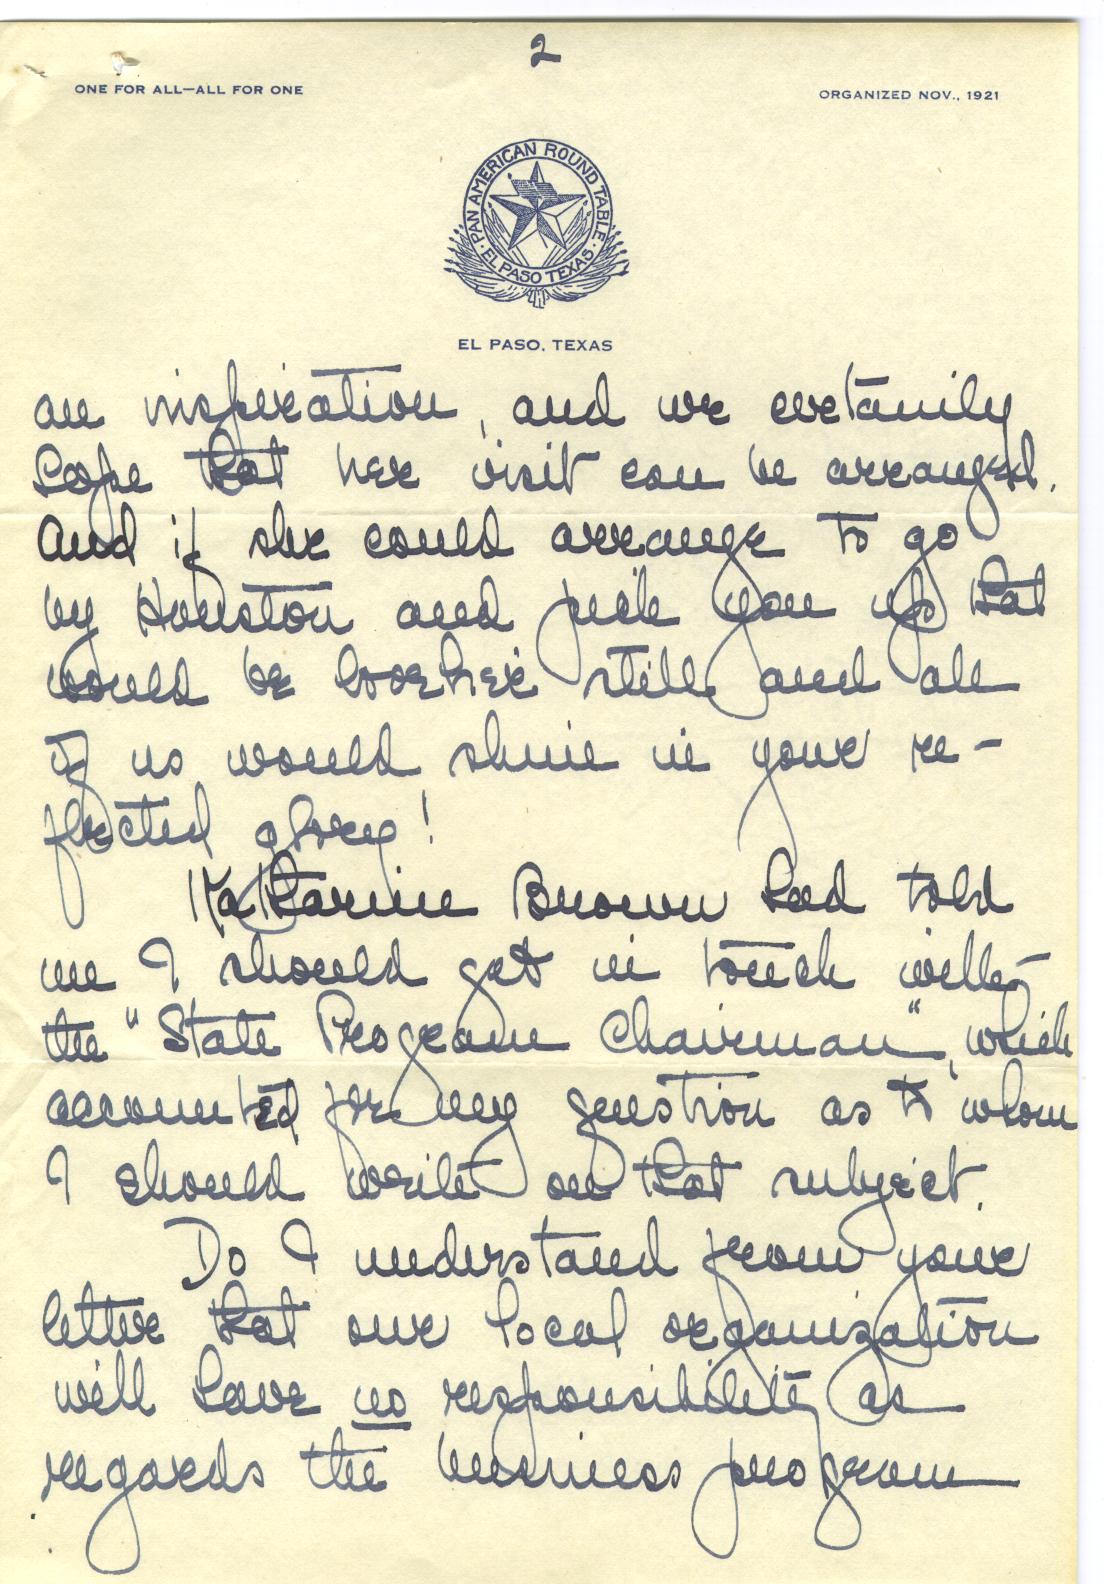 2
ONE FOR ALL—ALL FOR ONE
ORGANIZED NOV., 1921
PAN AMERICAN ROUND TABLE
· EL PASO TEXAS ·
EL PASO, TEXAS
an inspiration, and we certainly
hope that her visit can be arranged.
And if she could arrange to go
by Houston and pick you up that
would be better still and all
of us would shine in your re-
flected glory!
Katharine Brown had told
me I should get in touch with
the "State Program Chairman", which
accounted for my question as to whom
I should write on that subject.
Do I understand from your
letter that our local organization
will have no responsibility as
regards the business program